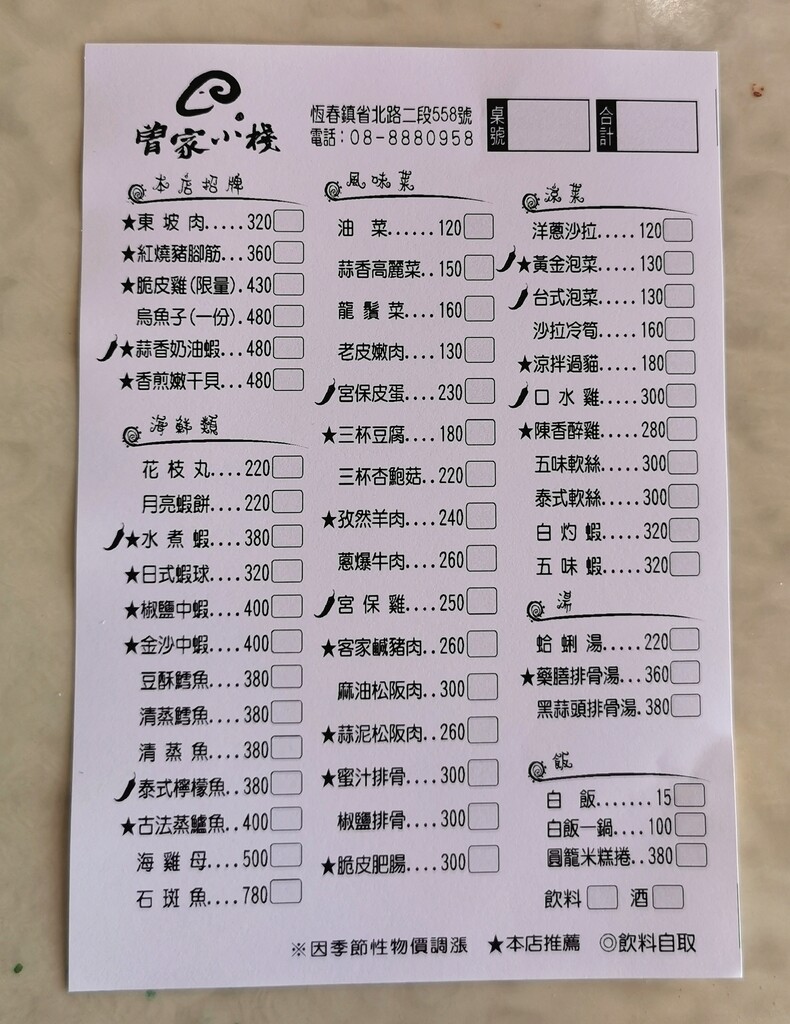 曾家小棧
恆春鎮省北路二段558號
電話：08-8880958
桌號
合計
本店招牌
★東坡肉.....320
★紅燒豬腳筋...360
★脆皮雞(限量).430
烏魚子(一份).480
★蒜香奶油蝦...480
★香煎嫩干貝...480
海鮮類
花枝丸....220
月亮蝦餅....220
★水煮蝦....380
★日式蝦球....320
★椒鹽中蝦....400
★金沙中蝦....400
豆酥鱈魚....380
清蒸鱈魚....380
清蒸魚....380
泰式檸檬魚..380
★古法蒸鱸魚..400
海雞母....500
石斑魚....780
風味菜
油菜......120
蒜香高麗菜..150
龍鬚菜....160
老皮嫩肉....130
宮保皮蛋....230
★三杯豆腐....180
三杯杏鮑菇..220
★孜然羊肉....240
蔥爆牛肉....260
宮保雞....250
★客家鹹豬肉..260
麻油松阪肉..300
★蒜泥松阪肉..260
★蜜汁排骨....300
椒鹽排骨....300
★脆皮肥腸....300
涼菜
洋蔥沙拉.....120
★黃金泡菜.....130
台式泡菜.....130
沙拉冷筍.....160
★涼拌過貓.....180
口水雞.....300
★陳香醉雞.....280
五味軟絲.....300
泰式軟絲.....300
白灼蝦.....320
五味蝦.....320
湯
蛤蜊湯.....220
★藥膳排骨湯...360
黑蒜頭排骨湯.380
飯
白飯.......15
白飯一鍋....100
圓籠米糕捲..380
飲料 酒
※因季節性物價調漲 ★本店推薦 ◎飲料自取